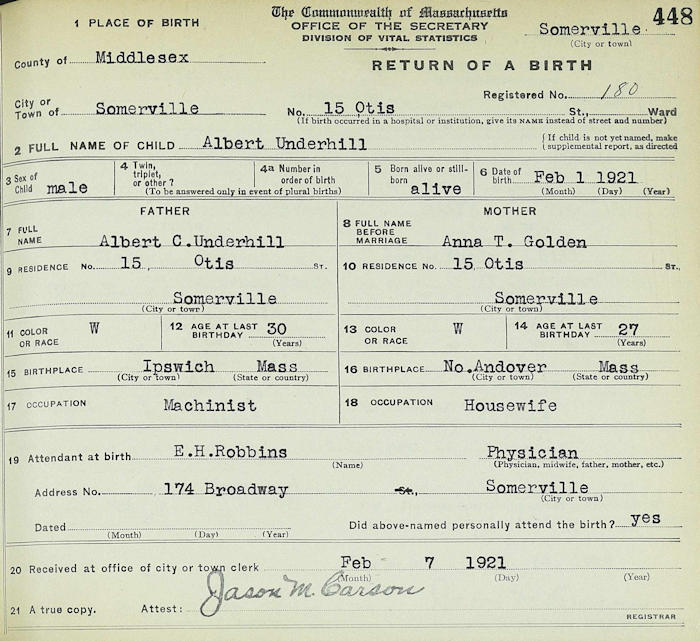 The Commonwealth of Massachusetts
OFFICE OF THE SECRETARY
DIVISION OF VITAL STATISTICS
448
Somerville
(City or town)
1 PLACE OF BIRTH
County of Middlesex
RETURN OF A BIRTH
Registered No. 180
City or
Town of Somerville No. 15 Otis St., Ward
(If birth occurred in a hospital or institution, give its NAME instead of street and number)
2 FULL NAME OF CHILD Albert Underhill
{ If child is not yet named, make
supplemental report, as directed
3 Sex of
Child male
4 Twin,
triplet,
or other?
4a Number in
order of birth
(To be answered only in event of plural births)
5 Born alive or still-
born alive
6 Date of
birth Feb 1 1921
(Month) (Day) (Year)
FATHER
MOTHER
7 FULL
NAME Albert C.Underhill
8 FULL NAME
BEFORE
MARRIAGE Anna T. Golden
9 RESIDENCE No. 15 Otis ST.
10 RESIDENCE No. 15 Otis ST.,
Somerville
(City or town)
Somerville
(City or town)
11 COLOR
OR RACE W
12 AGE AT LAST
BIRTHDAY 30
(Years)
13 COLOR
OR RACE W
14 AGE AT LAST
BIRTHDAY 27
(Years)
15 BIRTHPLACE Ipswich Mass
(City or town) (State or country)
16 BIRTHPLACE No.Andover Mass
(City or town) (State or country)
17 OCCUPATION Machinist
18 OCCUPATION Housewife
19 Attendant at birth E.H.Robbins Physician
(Name) (Physician, midwife, father, mother, etc.)
Address No. 174 Broadway St., Somerville
(City or town)
Dated
(Month) (Day) (Year)
Did above-named personally attend the birth? yes
20 Received at office of city or town clerk Feb 7 1921
(Month) (Day) (Year)
21 A true copy. Attest: Jason M. Carson
REGISTRAR